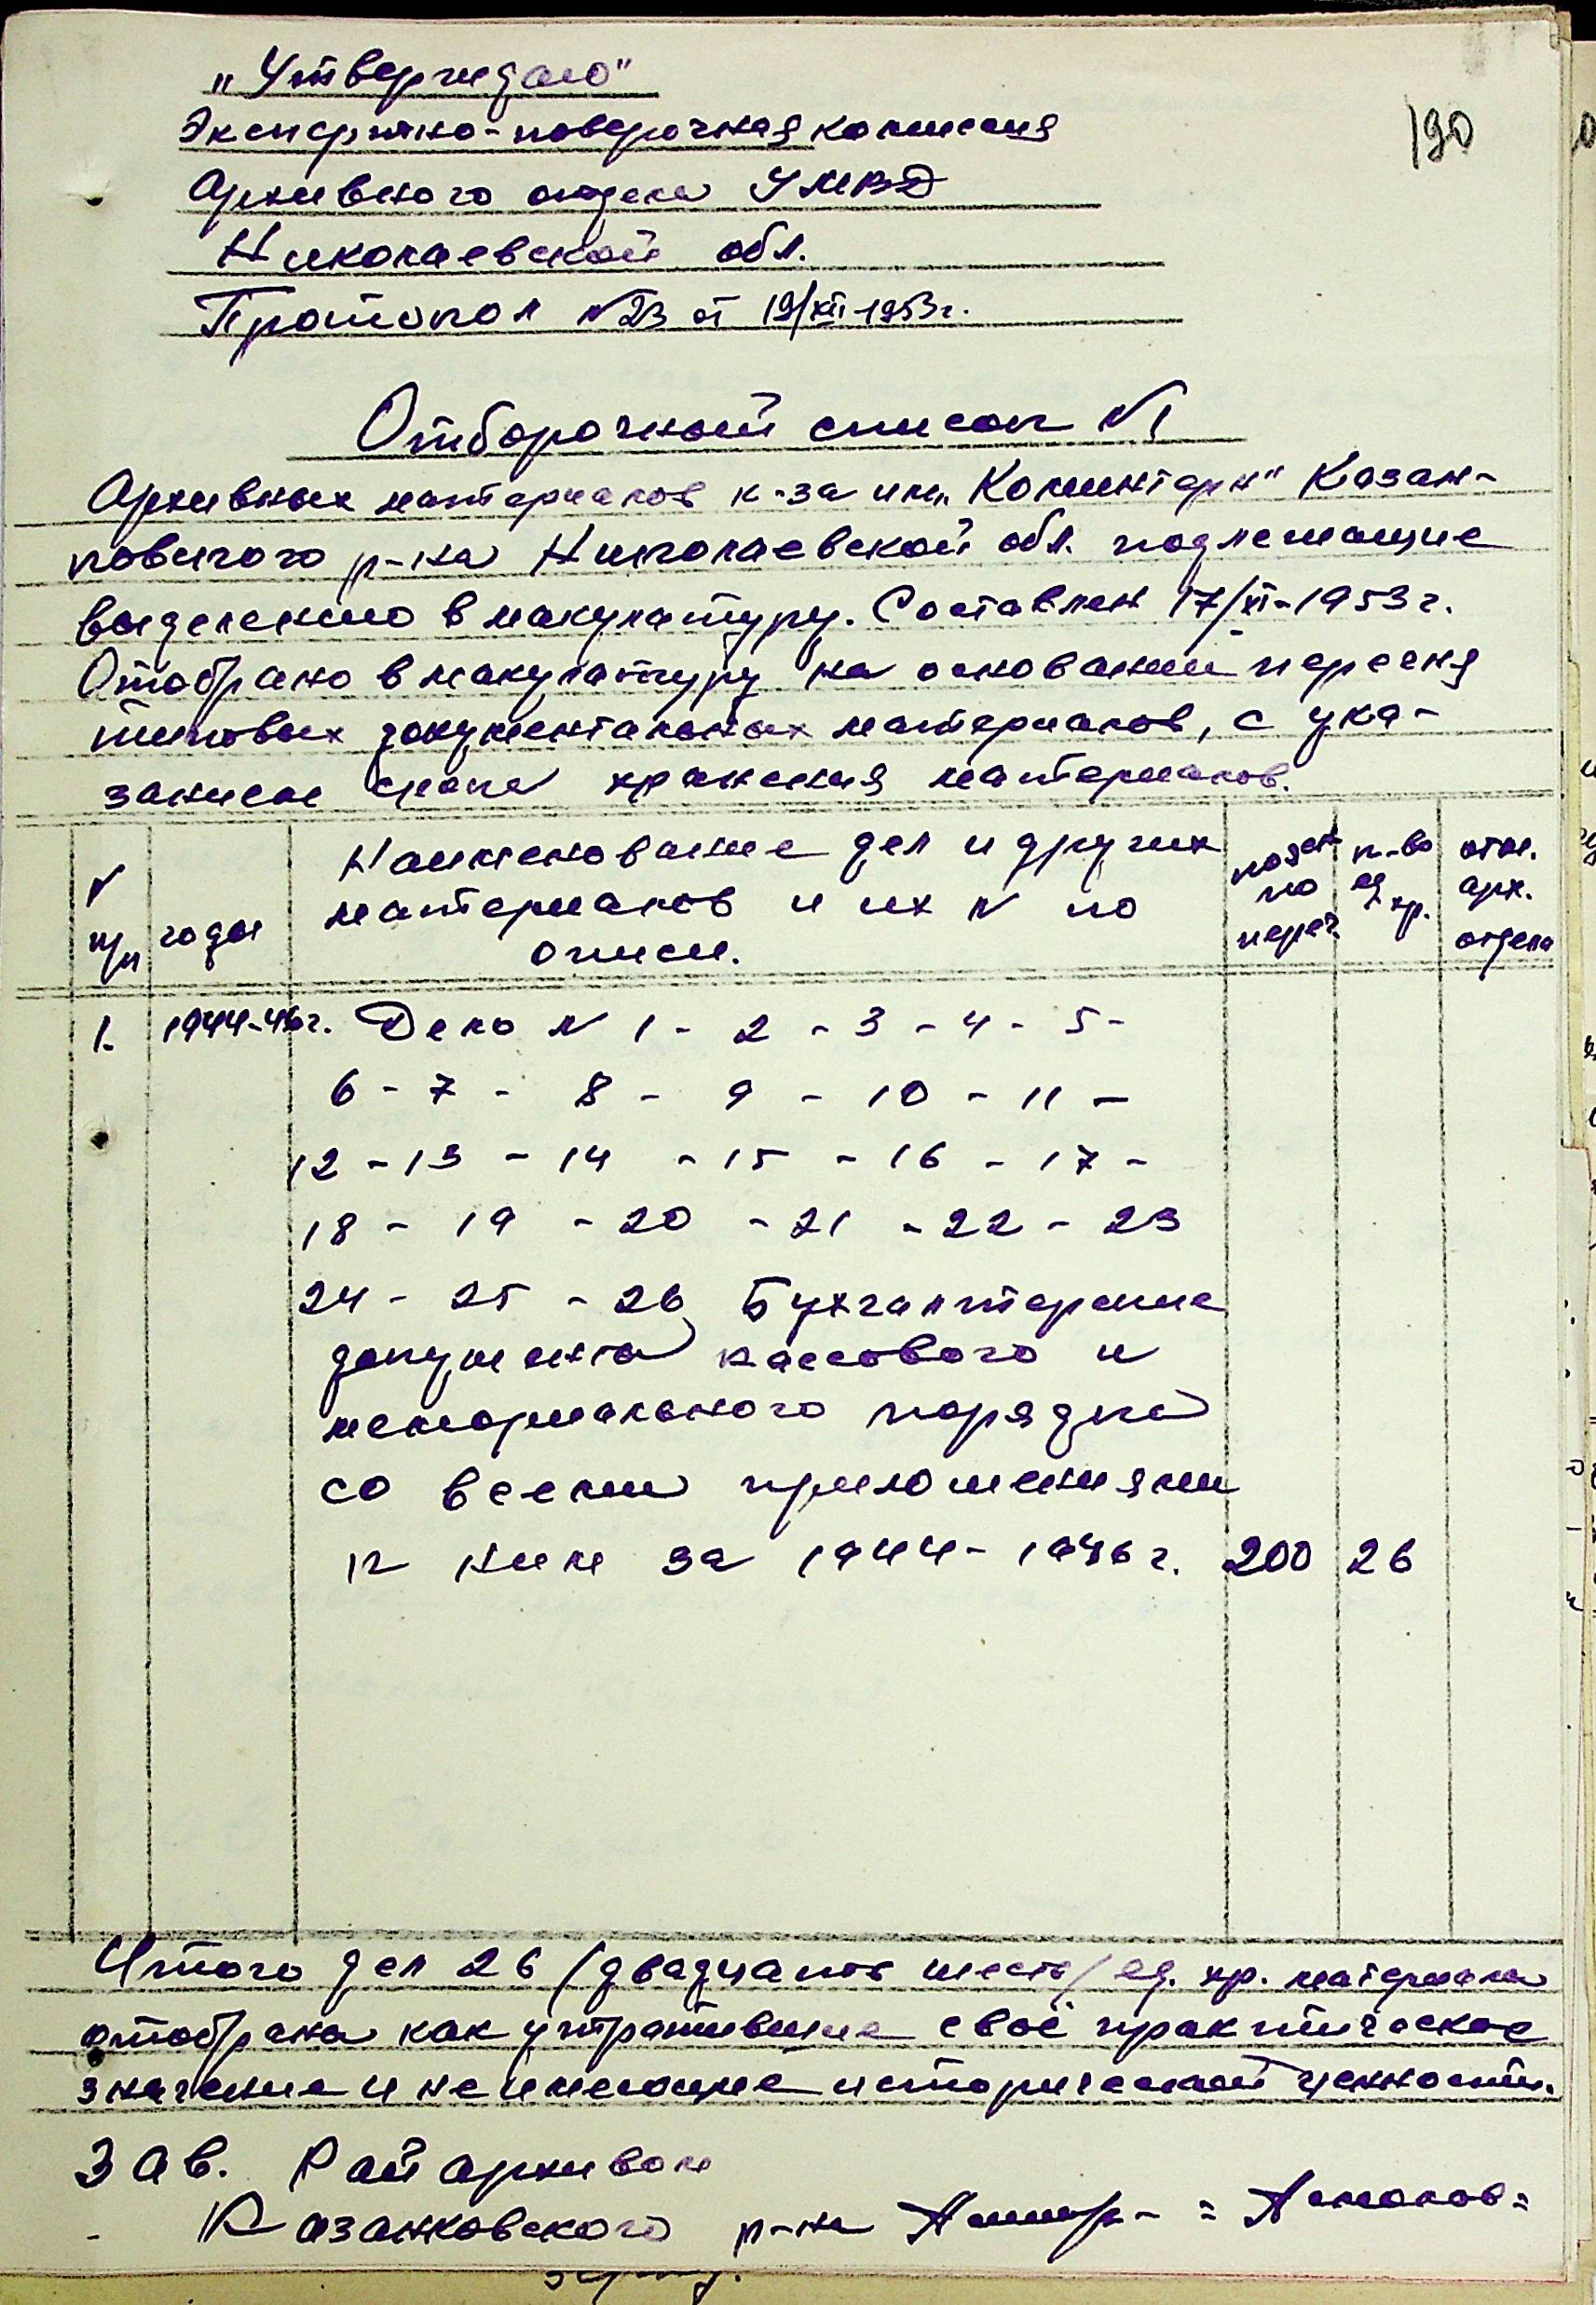 „Утверждаю"
190
Экспертно-поверочная комиссия
Архивного отдела УМВД
Николаевской обл.
Протокол №23 от 19/XII-1953г.
Отборочный список №1
Архивных материалов к-за им. „Коминтерн" Казан-
ковского р-на Николаевской обл. подлежащие
выделению в макулатуру. Составлен 17/XI-1953г.
Отобрано в макулатуру на основании перечня
типовых документальных материалов, с ука-
занием срока хранения материалов.
№ п/п годы Наименование дел и других материалов и их № по описи. позен. по переч. к-во ед. хр. отм. арх. отдела
1. 1944-46г. Дело № 1 - 2 - 3 - 4 - 5 -
6 - 7 - 8 - 9 - 10 - 11 -
12 - 13 - 14 - 15 - 16 - 17 -
18 - 19 - 20 - 21 - 22 - 23
24 - 25 - 26 Бухгалтерские
документы кассового и
мемориального порядка
со всеми приложениями
к ним за 1944-1946г. 200 26
Итого дел 26 /двадцать шесть/ ед. хр. материала
отобрана как утратившие своё практическое
значение и не имеющие исторической ценности.
Зав. Райархивом
Казанковского р-на